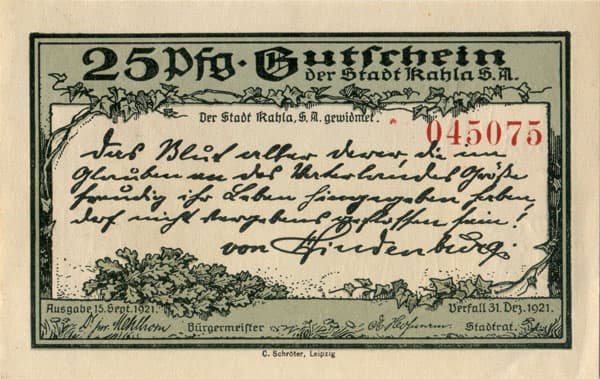 25 Pfg. Gutschein
der Stadt Kahla S.A.
Der Stadt Kahla, S.A. gewidmet.
045075
Das Blut aller derer, die im
Glauben an des Vaterlandes Größe
freudig ihr Leben hingegeben haben,
darf nicht vergebens geflossen sein!
von Hindenburg.
Ausgabe 15. Sept. 1921.
Verfall 31. Dez. 1921.
Bürgermeister
Stadtrat.
C. Schröter, Leipzig